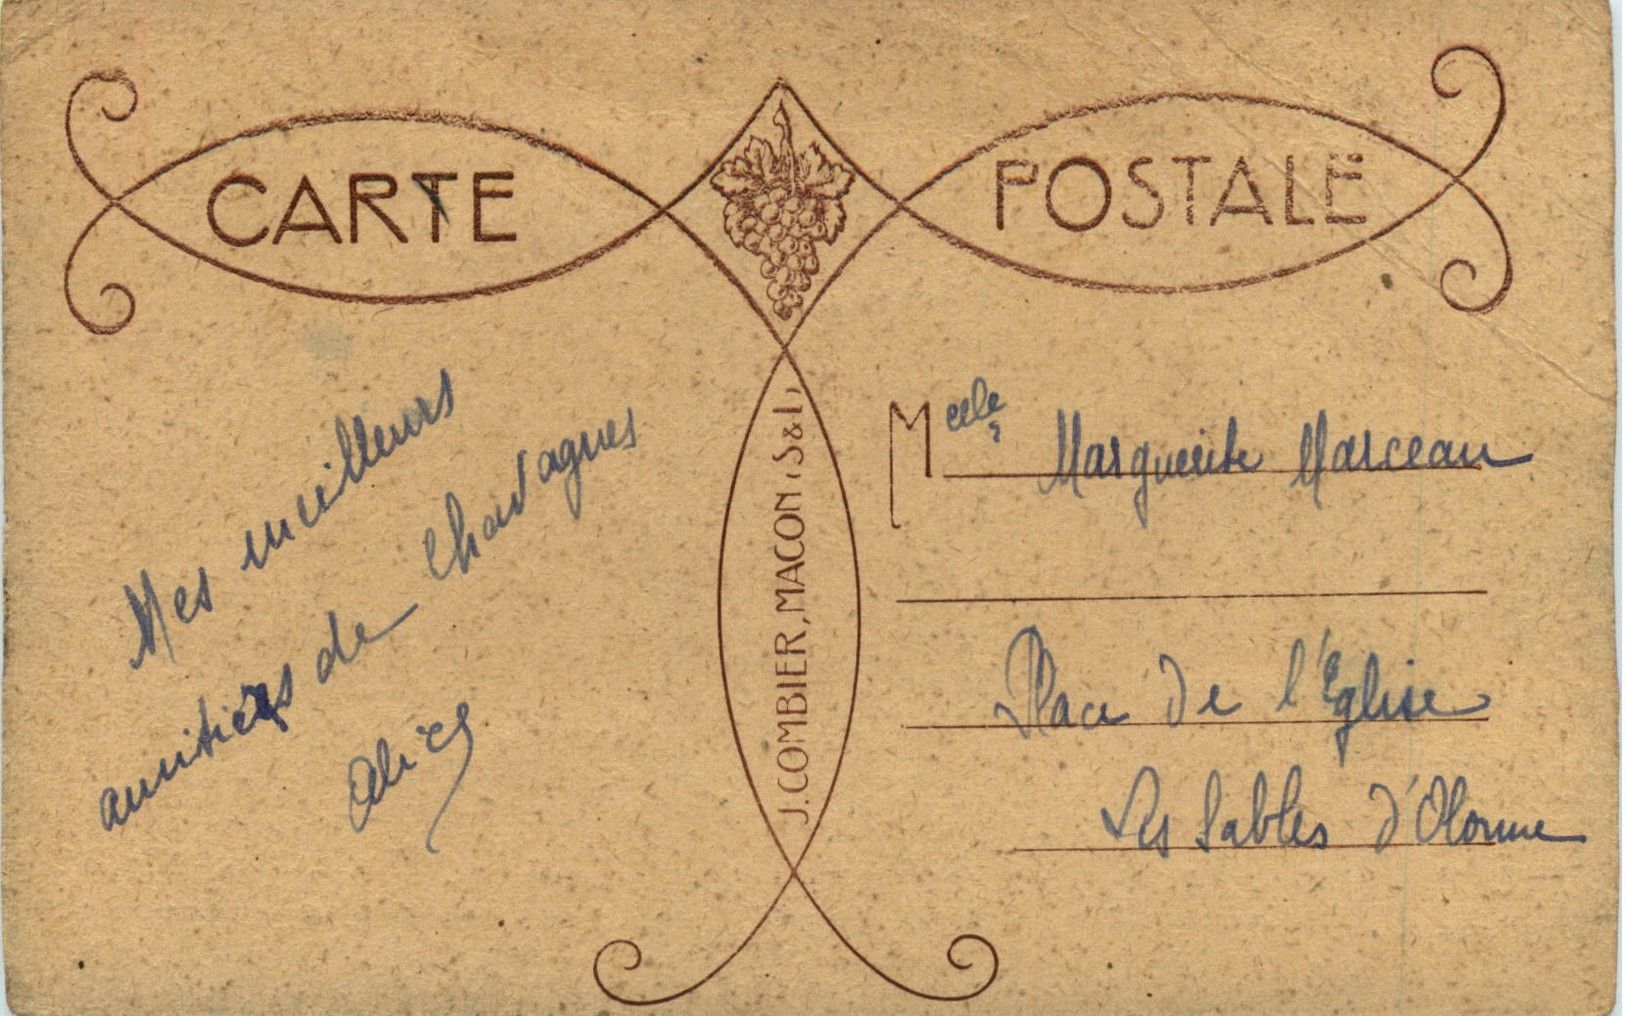 CARTE POSTALE
Mes meilleurs
amitiés de Chavagnes
Alice
J. COMBIER, MACON (S&L)
Melle Marguerite Marceau
Place de l'Eglise
Les Sables d'Olonne